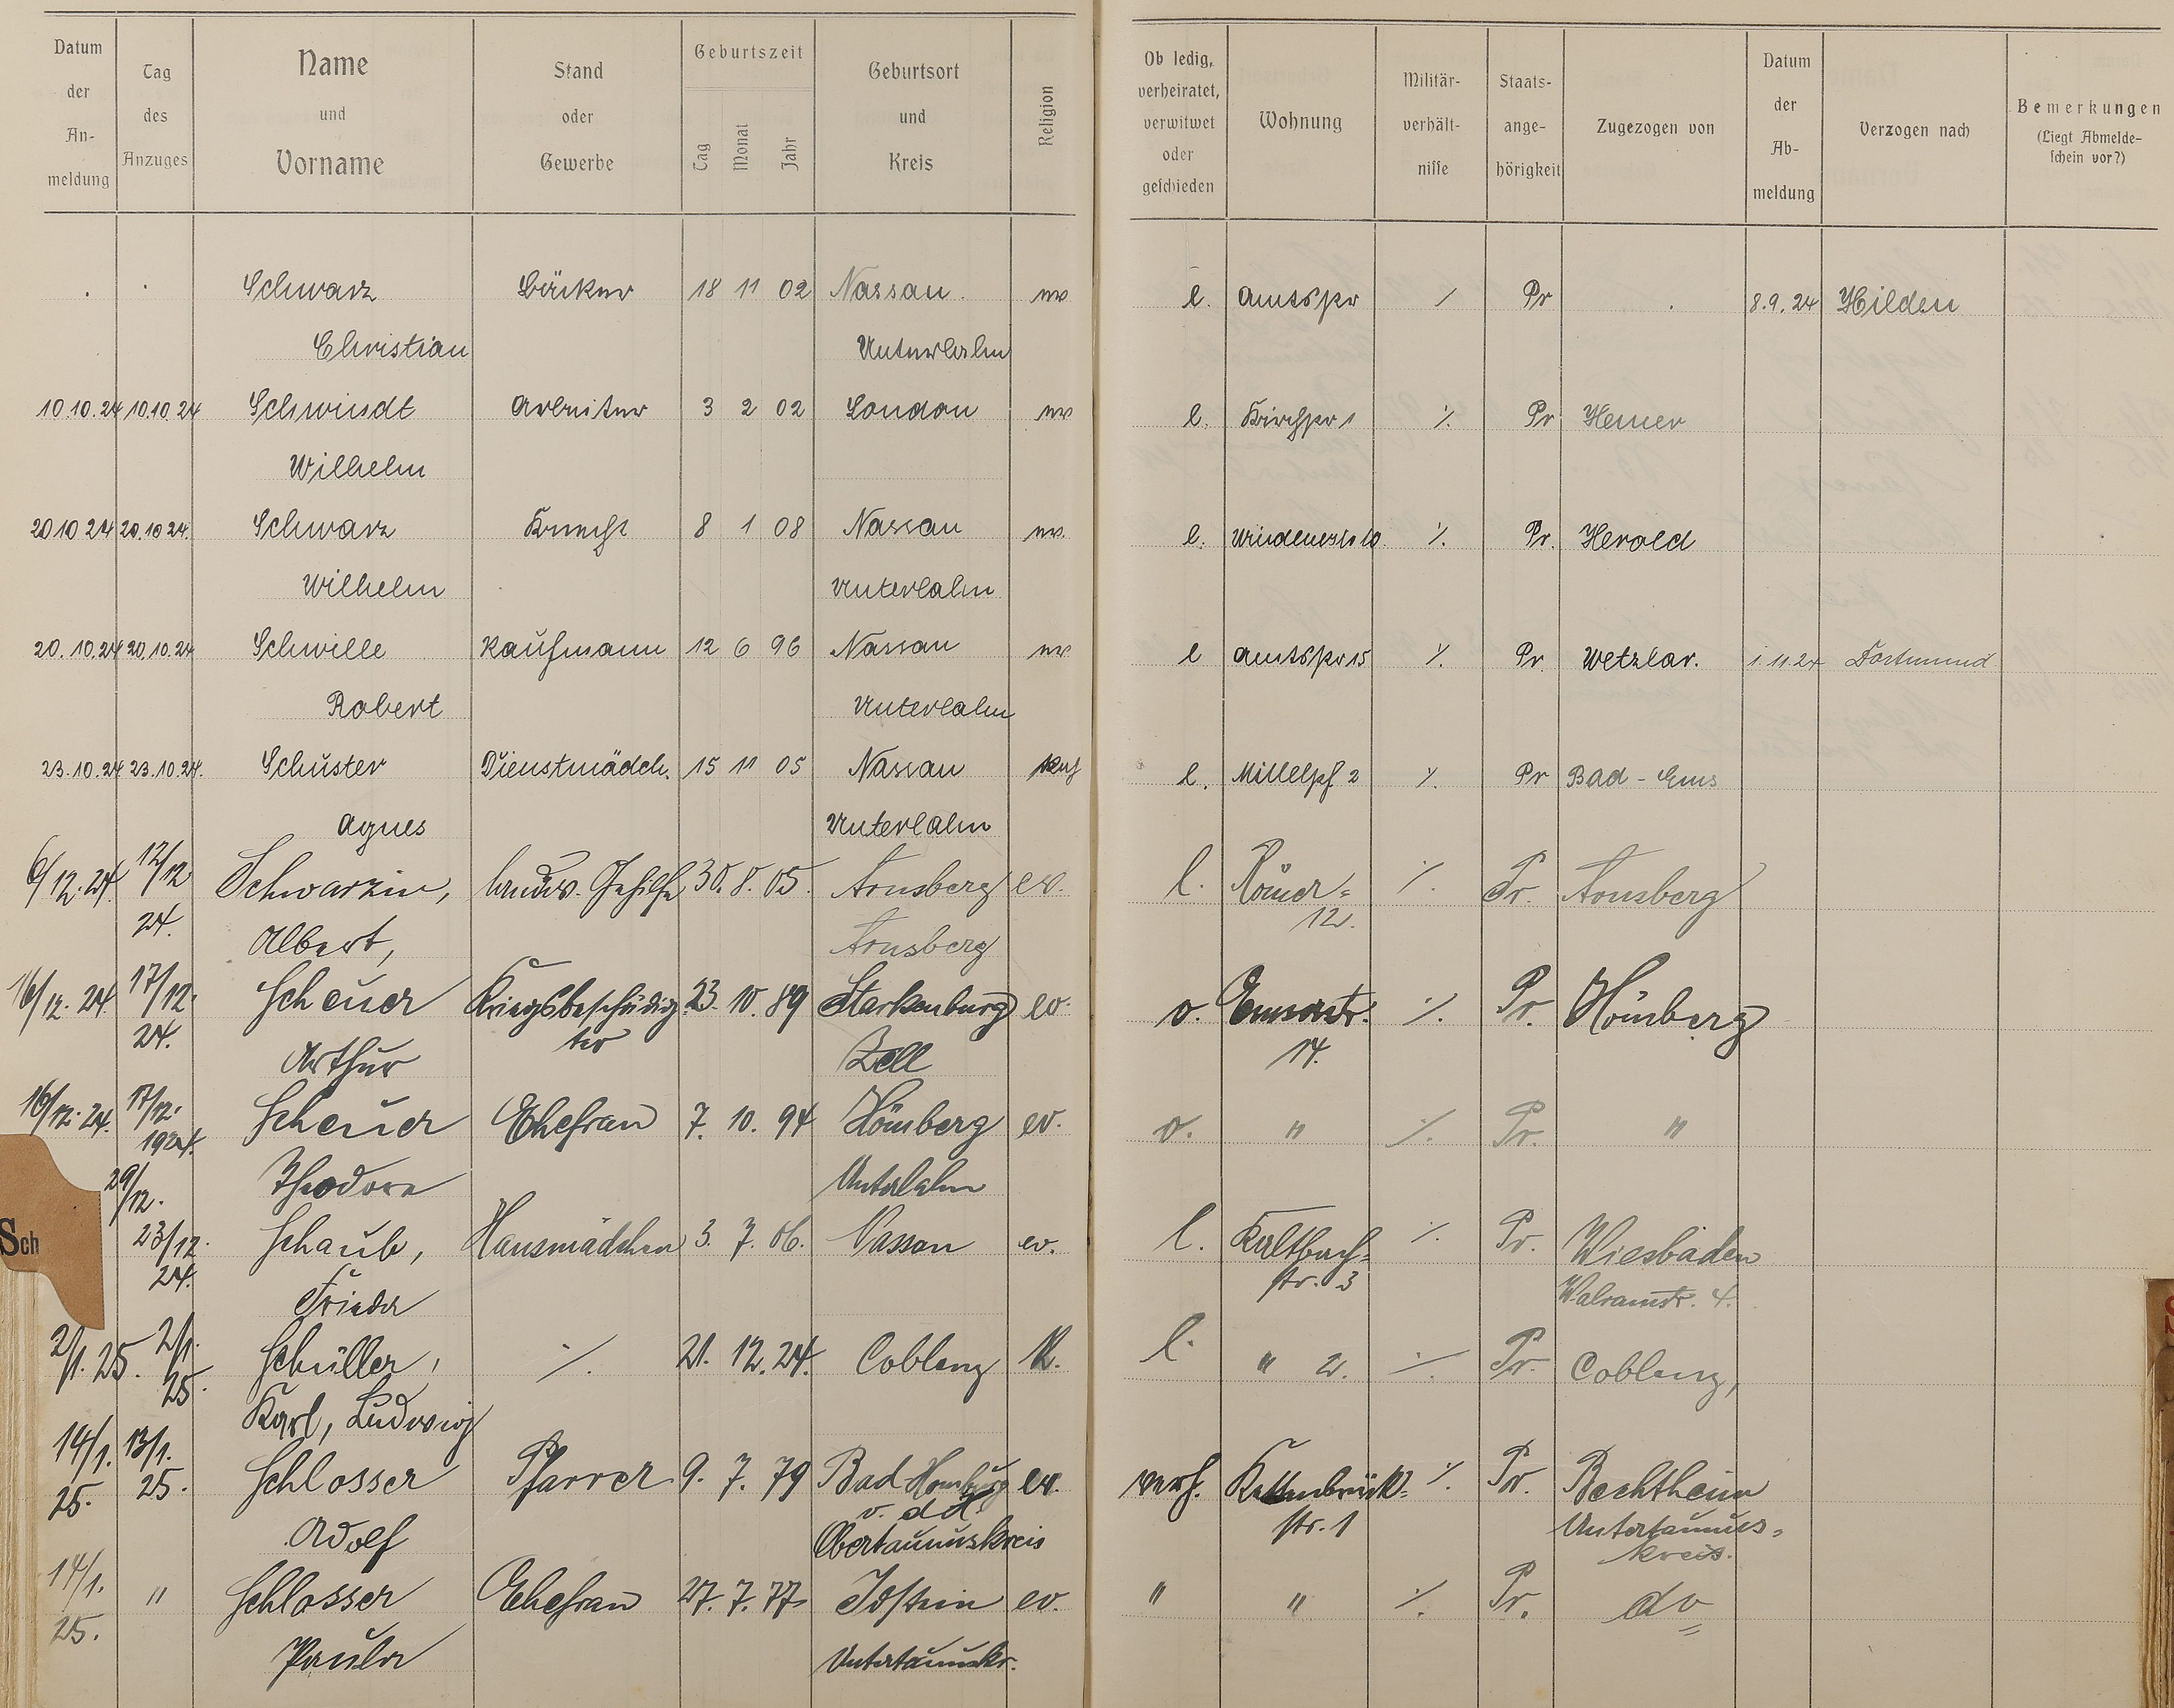 Datum der Anmeldung | Tag des Anzuges | Name und Vorname | Stand oder Gewerbe | Geburtszeit Tag Monat Jahr | Geburtsort und Kreis | Religion | Ob ledig, verheiratet, verwitwet oder geschieden | Wohnung | Militärverhältnisse | Staatsangehörigkeit | Zugezogen von | Datum der Abmeldung | Verzogen nach | Bemerkungen (Liegt Abmeldeschein vor?)
Schwarz Bäcker 18 11 02 Nassau ev l. Amtsstr / Pr 8.9.24 Hilden
Christian Unterlahn
10.10.24 10.10.24 Schwindt Arbeiter 3 2 02 London ev l. Kirchstr 1 ∕. Pr Hemer
Wilhelm
20 10 24 20.10 24. Schwarz Knecht 8 1 08 Nassau ev. l. 10 ∕. Pr. Herold
Wilhelm Unterlahn
20.10.24 20.10.24 Schwille Kaufmann 12 6 96 Nassau ev l Amtsstr 15 ∕. Pr Wetzlar. 1.11.24 Dortmund
Robert Unterlahn
23.10.24 23.10.24. Schuster Dienstmädch. 15 11 05 Nassau l. 2 ∕. Pr Bad-Ems
Agnes Unterlahn
6/12.24. 12/12 Schwarzin, landw. Gehilfe 30. 8. 05. Arnsberg ev. l. Römer= ∕. Pr. Arnsberg
24. Albert, Arnsberg 12.
16/12.24. 17/12. Scheuer Kriegsbeschädig 23. 10. 89 Starkenburg ev. v. Emserstr. ∕. Pr. Hömberg
24. Arthur ter Zell 14.
16/12.24. 17/12. Scheuer Ehefrau 7. 10. 94 Hömberg ev. v. " ∕. Pr. "
1924. Theodora Unterlahn
29/12. 23/12. Schaub, Hausmädchen 3. 7. 06. Nassau ev. l. Kaltbach= ∕. Pr. Wiesbaden
24. Frieda str. 3 Walramstr. 4.
Sch
2/1.25. 2/1. Schüller, ∕. 21. 12. 24. Coblenz K. l. " 2. ∕. Pr. Coblenz,
25. Karl, Ludwig
14/1. 13/1. Schlosser Pfarrer 9. 7. 79 Bad Homburg ev. verh. Kettenbrück= ∕. Pr. Bechtheim
25. 25. v. d H. str. 1 Untertaunus=
Adolf Obertaunuskreis kreis.
14/1. " Schlosser Ehefrau 27. 7. 77 Idstein ev. " " ∕. Pr. do
25. Paula Untertaunuskr.